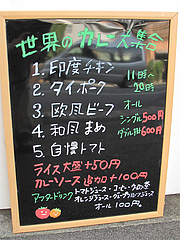 世界のカレー大集合
1. 印度チキン
2. タイポーク
3. 欧風ビーフ
4. 和風まめ
5. 自慢トマト
11時〜
20時
オール
シングル500円
ダブル掛600円
ライス大盛+50円
カレーソース追加+100円
アフタードリンク
トマトジュース・コーヒー・ウーロン茶
オレンジジュース・グレープフルーツジュース
オール100円